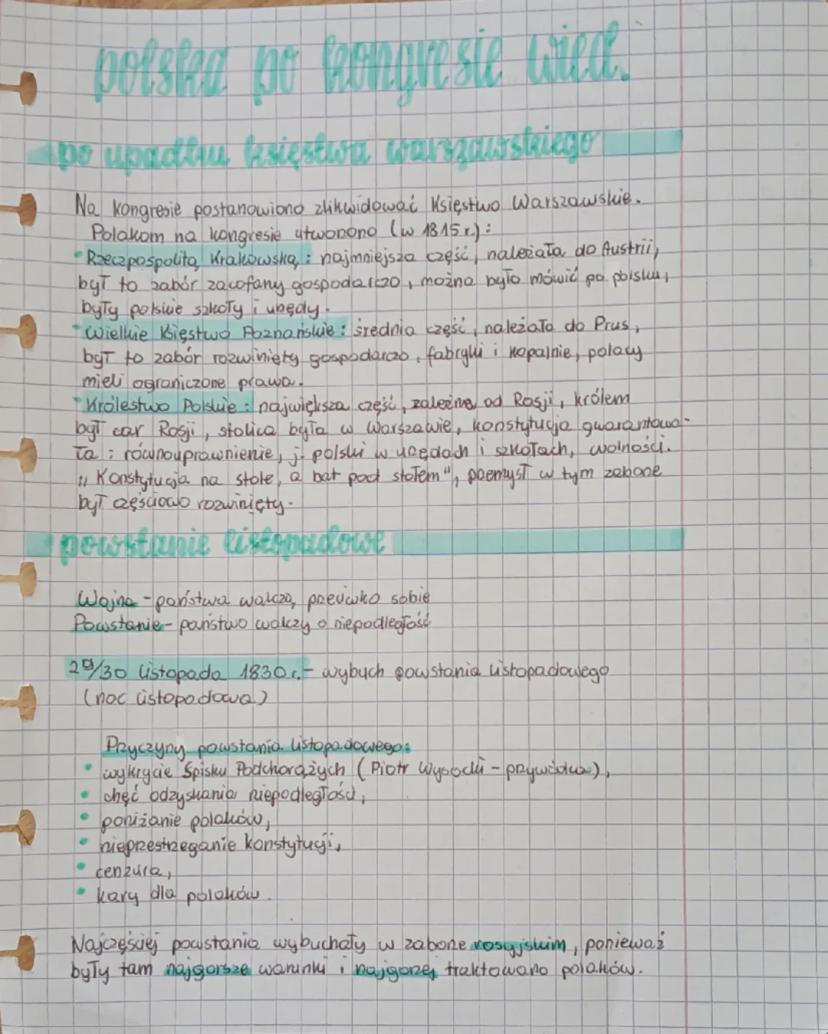 polska po kongresie wied.
po upadku księstwa warszawskiego
Na kongresie postanowiono zlikwidować Księstwo Warszawskie.
Polakom na kongresie utworzono (w 1815 r.):
• Rzeczpospolitą Krakowską: najmniejsza część, należała do Austrii,
był to zabór zacofany gospodarczo, można było mówić po polsku,
były polskie szkoły i urzędy.
• Wielkie Księstwo Poznańskie: średnia część, należało do Prus,
był to zabór rozwinięty gospodarczo, fabryki i kopalnie, polacy
mieli ograniczone prawa.
• Królestwo Polskie: największa część, zależna od Rosji, królem
był car Rosji, stolica była w Warszawie, konstytucja gwarantowa-
ła: równouprawnienie, j. polski w urzędach i szkołach, wolności.
„Konstytucja na stole, a bat pod stołem", przemysł w tym zaborze
był częściowo rozwinięty.
powstanie listopadowe
Wojna - państwa walczą przeciwko sobie
Powstanie - państwo walczy o niepodległość
29/30 listopada 1830 r. - wybuch powstania listopadowego
(noc listopadowa)
Przyczyny powstania listopadowego:
• wykrycie Spisku Podchorążych (Piotr Wysocki - przywódca),
• chęć odzyskania niepodległości,
• poniżanie polaków,
• nieprzestrzeganie konstytucji,
• cenzura,
• kary dla polaków.
Najczęściej powstania wybuchały w zaborze rosyjskim, ponieważ
były tam najgorsze warunki i najgorzej traktowano polaków.